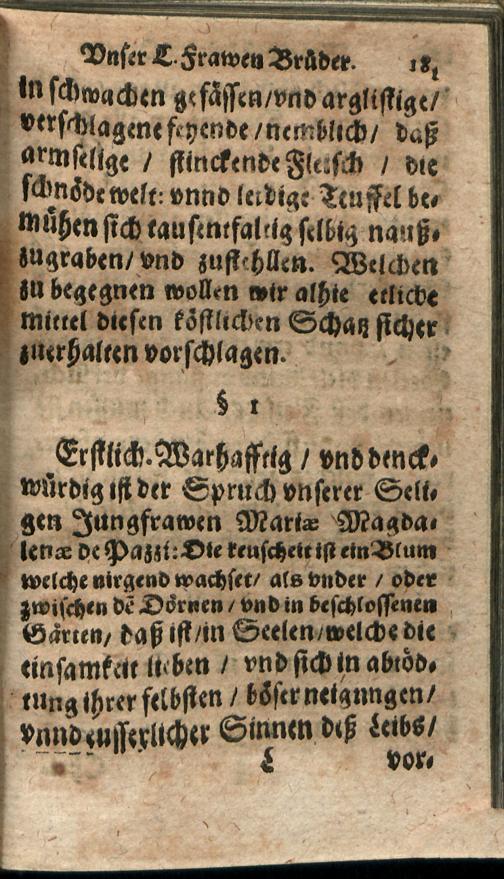 Vnser L. Frawen Brüder. 181
in schwachen gefässen/vnd arglistige/
verschlagene feyende /nemblich/ daß
armselige / stinckende Fleisch / die
schnöde welt: vnnd leidige Teuffel be-
mühen sich tausentfaltig selbig nauß-
zugraben/ vnd zustehllen. Welchen
zu begegnen wollen wir alhie etliche
mittel diesen köstlichen Schatz sicher
zuerhalten vorschlagen.
§ 1
Erstlich. Warhafftig / vnd denck-
würdig ist der Spruch vnserer Seli-
gen Jungfrawen Mariæ Magda-
lenæ de Pazzi: Die keuscheit ist ein Blum
welche nirgend wachset/ als vnder / oder
zwischen dẽ Dörnen / vnd in beschlossenen
Gärten/ daß ist/in Seelen/welche die
einsamkeit lieben / vnd sich in abtöd-
tung ihrer selbsten / böser neigungen/
vnnd eusserlicher Sinnen deß Leibs/
L vor-